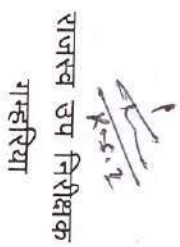 राजस्व उप निरीक्षक
गम्हरिया